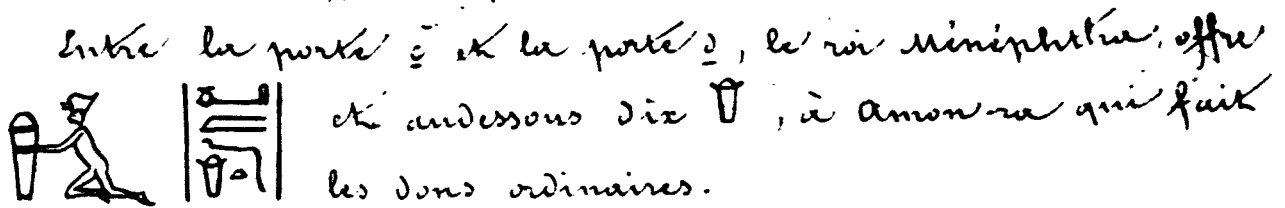 Entre la porte c et la porte d, le roi Ménéphtha, offre
et andessous dix , à Amon-ra qui fait
les dons ordinaires.